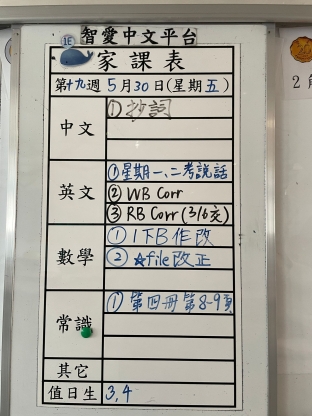 1E 智愛中文平台
家課表
第十九週 5月30日(星期五)
中文
① 抄詞
英文
①星期一、二考說話
② WB Corr
③ RB Corr (3/6交)
數學
① 1下B作改
② ☆file改正
常識
① 第四冊第8-9頁
其它
值日生 3,4